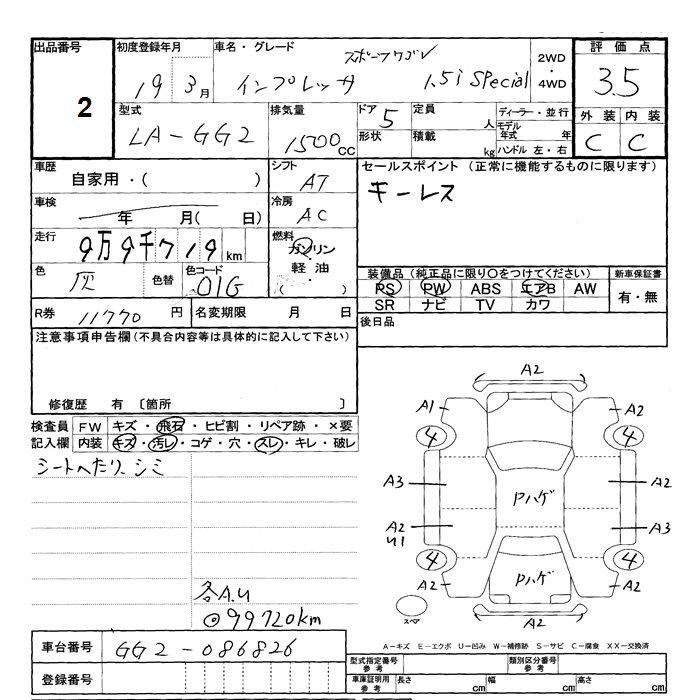 出品番号 初度登録年月 車名・グレード スポーツワゴン 2WD・4WD 評価点
2 19 3月 インプレッサ 1.5i Special 3.5
型式 排気量 ドア 定員 ディーラー・並行 外装 内装
LA-GG2 1500cc 5 人 モデル年式 年 C C
形状 積載 kg ハンドル 左・右
車歴 自家用・( ) シフト AT セールスポイント (正常に機能するものに限ります)
車検 年 月( 日) 冷房 AC キーレス
走行 9万9千719km 燃料 ガソリン・軽油・( )
色 灰 色替 色コード 01G 装備品(純正品に限り○をつけてください) 新車保証書
PS PW ABS エアB AW 有・無
SR ナビ TV カワ
R券 11770円 名変期限 月 日 後日品
注意事項申告欄(不具合内容等は具体的に記入して下さい)
修復歴 有 〔箇所 〕
検査員 FW キズ・飛石・ヒビ割・リペア跡・×要
記入欄 内装 キズ・汚レ・コゲ・穴・スレ・キレ・破レ
シートへたり、シミ
A2
A1 A2
4 4
A3 A2
Pハゲ
A2 A3
U1
4 4
Pハゲ
A2 A2
A2
スペア
各A.U
◎99720km
A-キズ E-エクボ U-凹み W-補修跡 S-サビ C-腐食 XX-交換済
車台番号 GG2-086826
型式指定番号 参考 類別区分番号 参考
登録番号 車庫証明用 参考 長さ cm 幅 cm 高さ cm